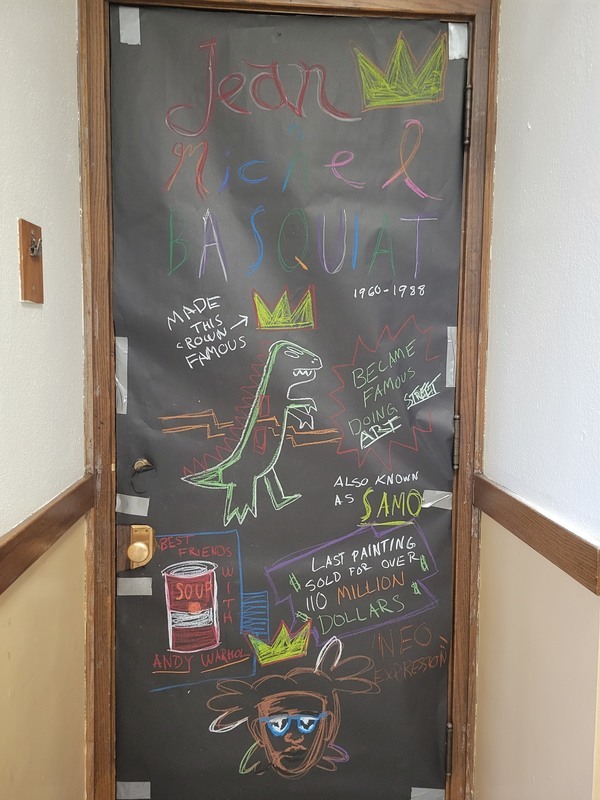 Jean
Michel
BASQUIAT
1960-1988
MADE
THIS
CROWN
FAMOUS
BECAME
FAMOUS
DOING STREET
ART
ALSO KNOWN
AS SAMO
BEST
FRIENDS
WITH
SOUP
ANDY WARHOL
LAST PAINTING
SOLD FOR OVER
110 MILLION
DOLLARS
"NEO
EXPRESSION"